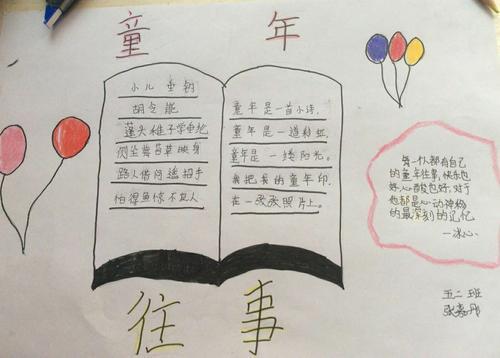 童年
小儿垂钓
胡令能
蓬头稚子学垂纶
侧坐莓苔草映身
路人借问遥招手
怕得鱼惊不应人
童年是一首小诗.
童年是一道彩虹.
童年是一缕阳光.
我把我的童年印.
在一张张照片上.
每一个人都有自己
的童年往事,快乐也
好,心酸也好,对于
他都是心动神怡
的最深刻的记忆
一冰心.
往事
五二班
张嘉彤